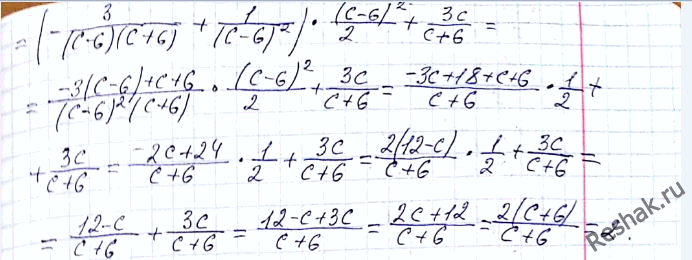 = (-3/((c-6)(c+6)) + 1/(c-6)²) · (c-6)²/2 + 3c/(c+6) =
= (-3(c-6)+c+6)/((c-6)²(c+6)) · (c-6)²/2 + 3c/(c+6) = (-3c+18+c+6)/(c+6) · 1/2 +
+ 3c/(c+6) = (-2c+24)/(c+6) · 1/2 + 3c/(c+6) = 2(12-c)/(c+6) · 1/2 + 3c/(c+6) =
= (12-c)/(c+6) + 3c/(c+6) = (12-c+3c)/(c+6) = (2c+12)/(c+6) = 2(c+6)/(c+6) = 2.
Reshak.ru